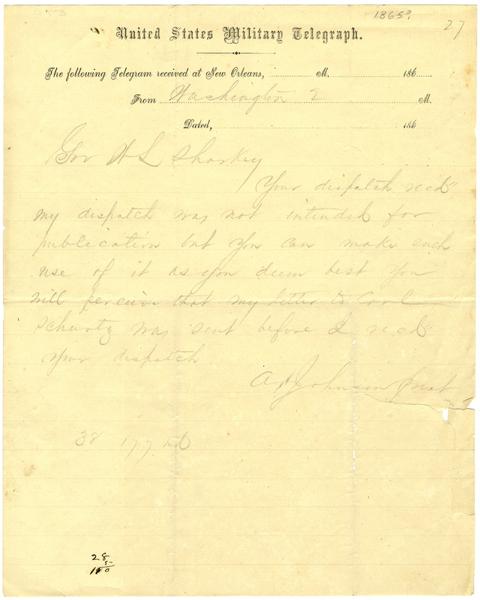 1865?
27
United States Military Telegraph.
The following Telegram received at New Orleans, M. 186
From Washington 2 M.
Dated, 186
Gov W L Sharkey
Your dispatch recd
my dispatch was not intended for
publication but you can make such
use of it as you deem best You
will perceive that my letter to Carl
Schurtz was sent before I recd
your dispatch
Johnson Prest
38 177
28